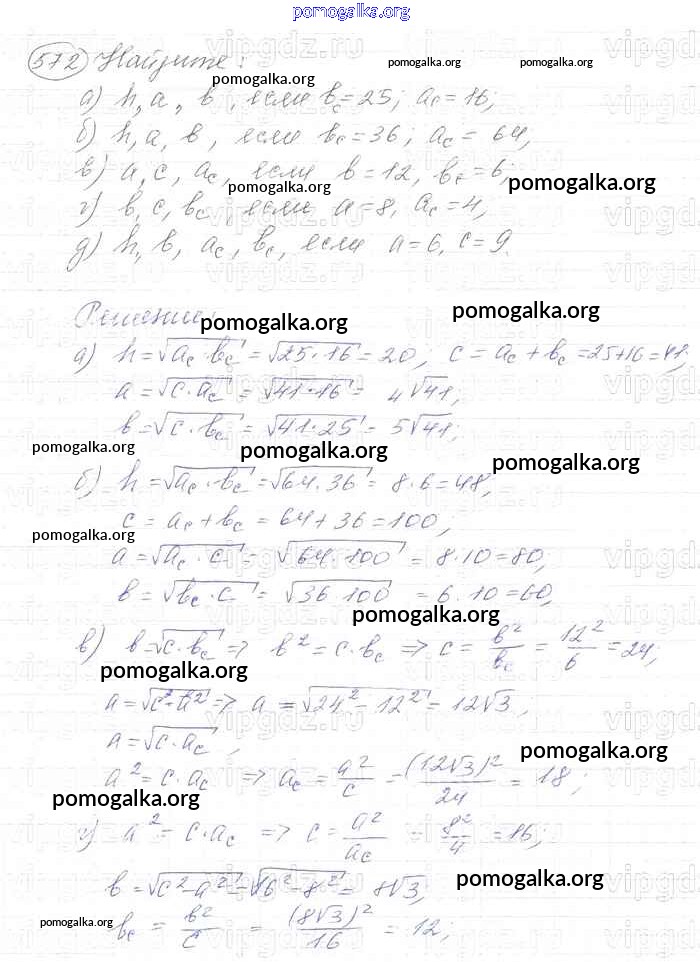 pomogalka.org
572 Найдите:
pomogalka.org pomogalka.org pomogalka.org
а) h, a, b, если b_c = 25; a_c = 16;
б) h, a, b, если b_c = 36; a_c = 64,
в) a, c, a_c, если b = 12, b_c = 6;
pomogalka.org pomogalka.org
г) b, c, b_c, если a = 8, a_c = 4,
д) h, b, a_c, b_c, если a = 6, c = 9.
Решение:
pomogalka.org pomogalka.org
а) h = √(a_c · b_c) = √(25 · 16) = 20, c = a_c + b_c = 25 + 16 = 41,
a = √(c · a_c) = √(41 · 16) = 4√41,
b = √(c · b_c) = √(41 · 25) = 5√41;
pomogalka.org pomogalka.org pomogalka.org
б) h = √(a_c · b_c) = √(64 · 36) = 8 · 6 = 48,
c = a_c + b_c = 64 + 36 = 100,
pomogalka.org
a = √(a_c · c) = √(64 · 100) = 8 · 10 = 80,
b = √(b_c · c) = √(36 · 100) = 6 · 10 = 60,
pomogalka.org
в) b = √(c · b_c) => b² = c · b_c => c = b²/b_c = 12²/6 = 24;
pomogalka.org
a = √(c² - a²) => a = √(24² - 12²) = 12√3,
a = √(c · a_c),
pomogalka.org
a² = c · a_c => a_c = a²/c = (12√3)²/24 = 18;
pomogalka.org
г) a² = c · a_c => c = a²/a_c = 8²/4 = 16,
b = √(c² - a²) = √(16² - 8²) = 8√3,
pomogalka.org
pomogalka.org
b_c = b²/c = (8√3)²/16 = 12;